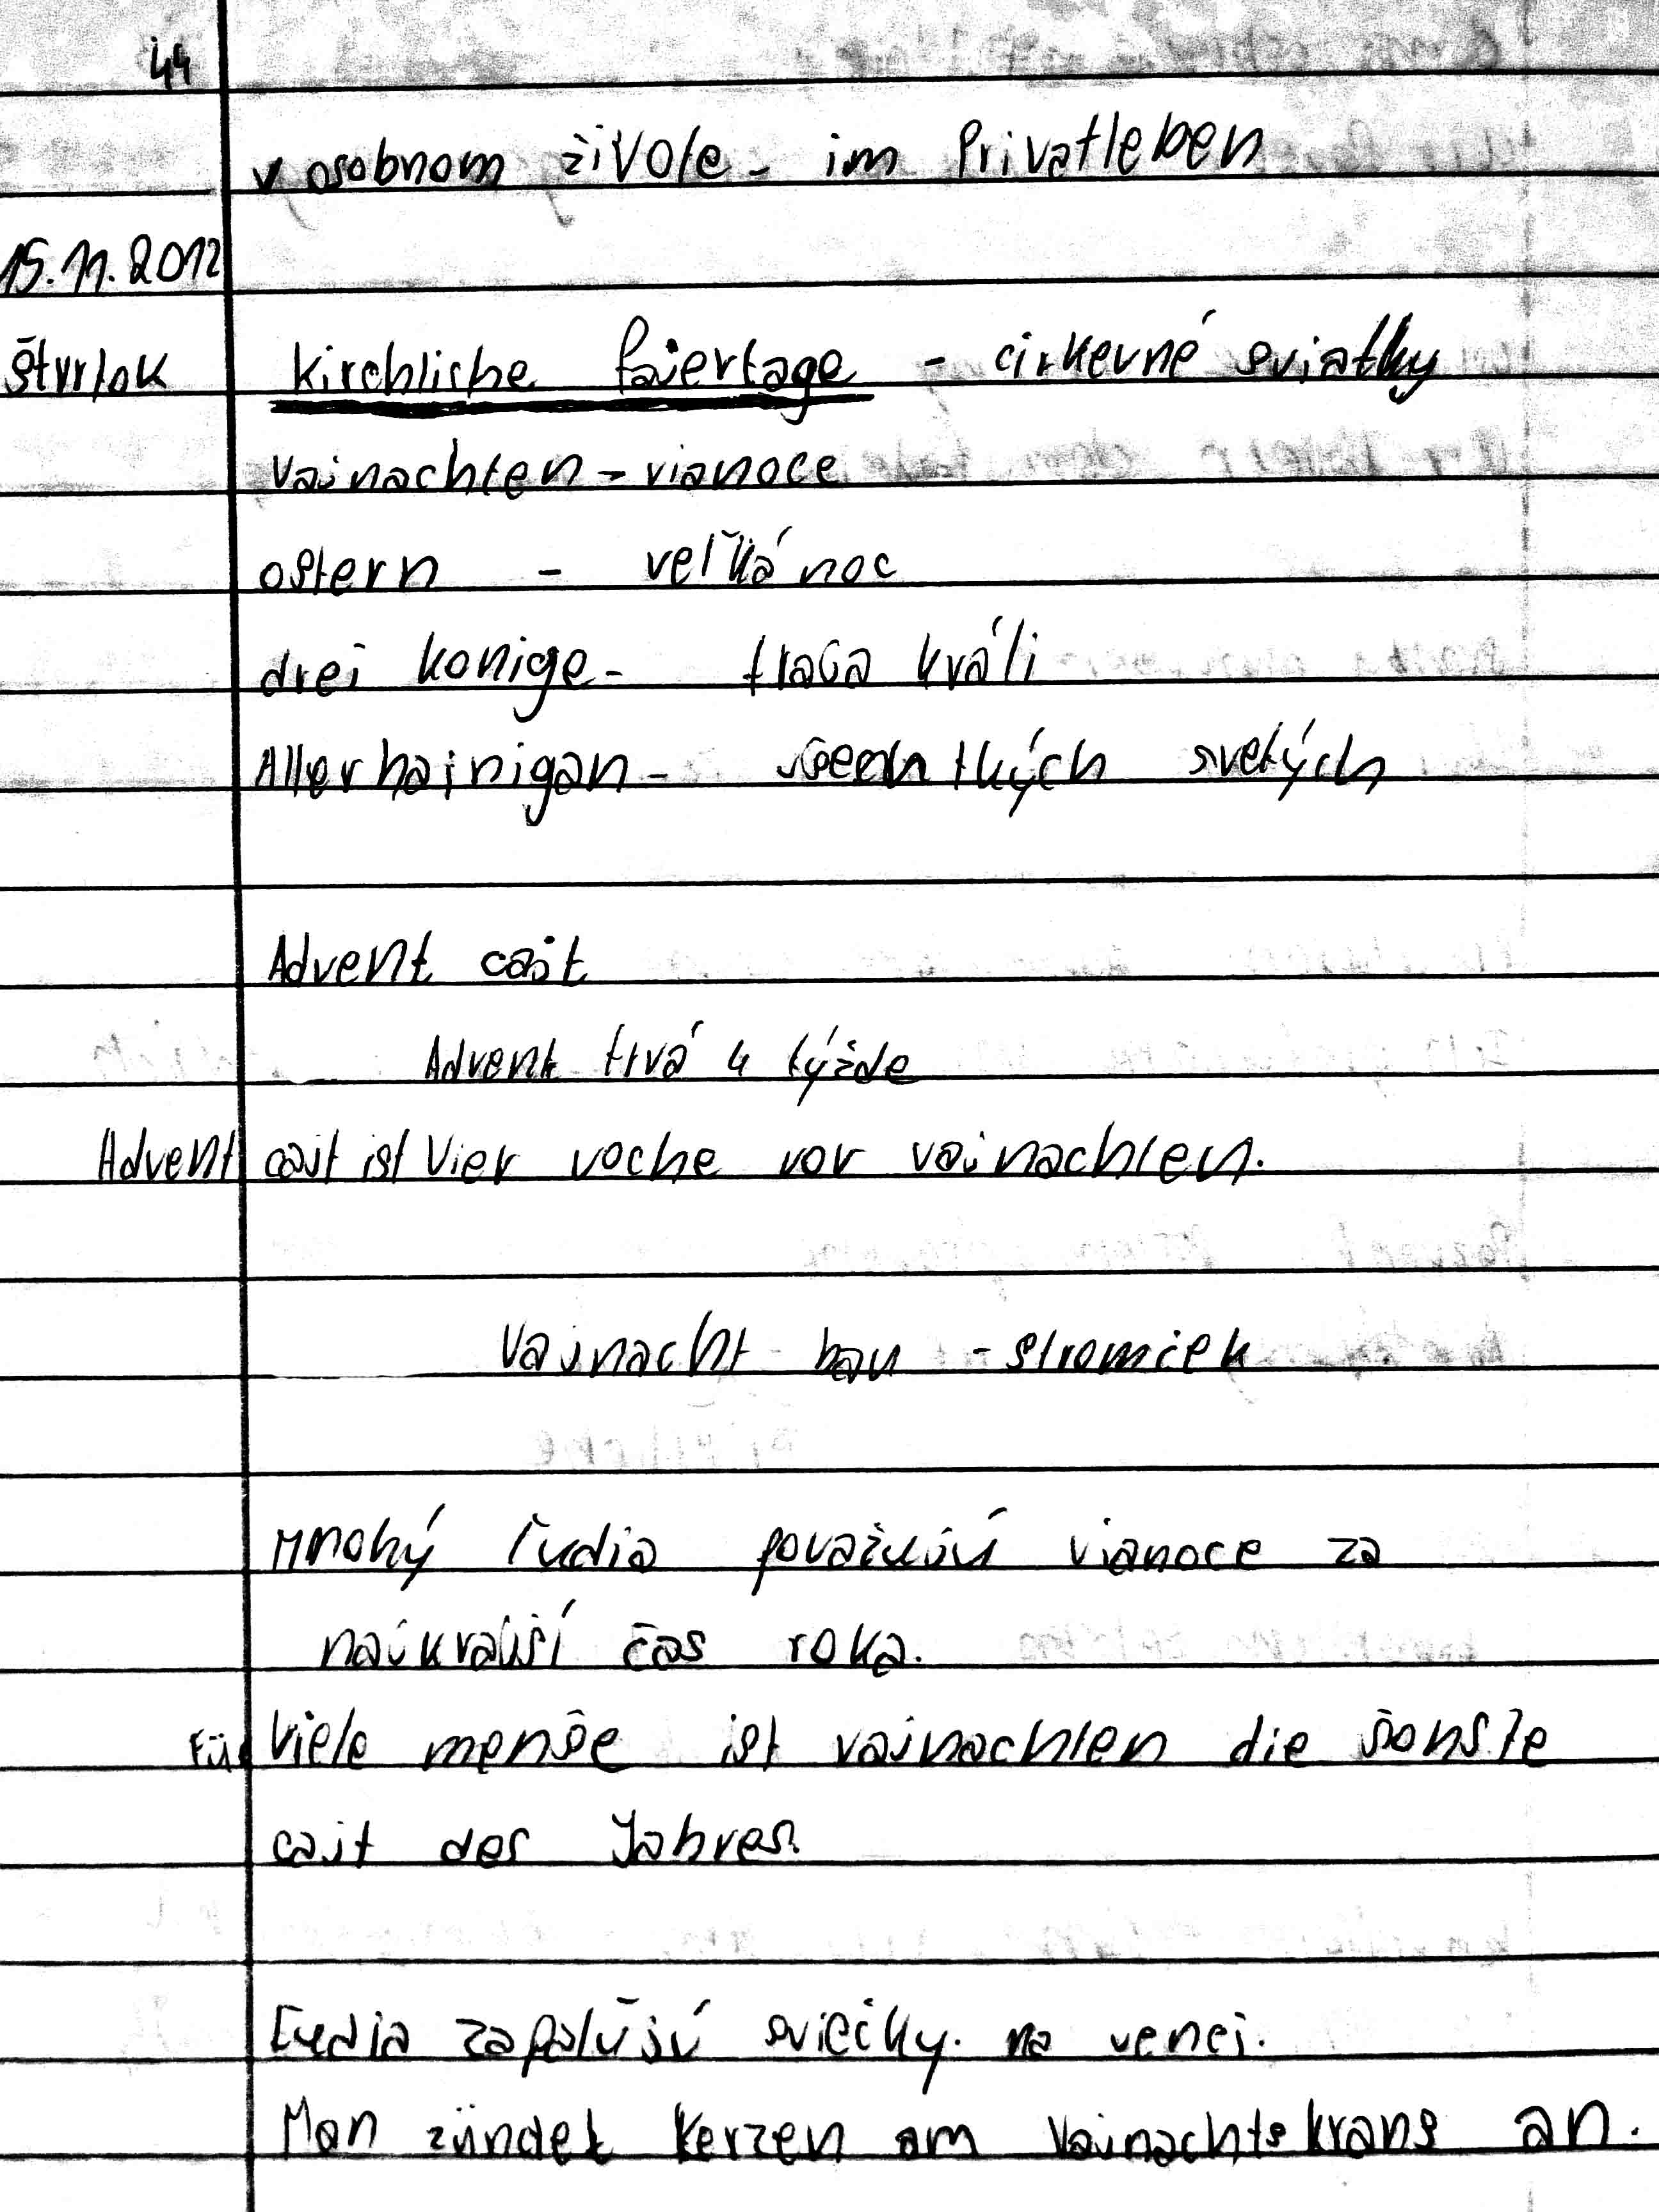 44
v osobnom živote - im Privatleben
15.11.2012
štvrtok kirchliche fajertage - cirkevné sviatky
Vajnachten - vianoce
ostern - veľká noc
drei konige - traja králi
Allerhajnigan - všech tkých svetých
Advent cajt
Advent trvá 4 týžde
Advent cajt ist Vier voche vor vajnachten.
Vajnacht bau - stromček
Mnohý ľudia považujú vianoce za
najkrajší čas roka.
Für Viele menše ist vajnachten die šonste
cajt des Jahres.
Ľudia zapaľujú sviečky na venci.
Man zündet Kerzen am Vajnachtskrans an.